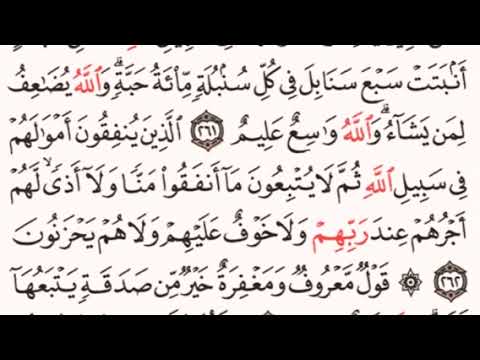 أَنۢبَتَتْ سَبْعَ سَنَابِلَ فِى كُلِّ سُنۢبُلَةٍ مِّا۟ئَةُ حَبَّةٍ ۗ وَٱللَّهُ يُضَـٰعِفُ
لِمَن يَشَآءُ ۗ وَٱللَّهُ وَٰسِعٌ عَلِيمٌ ٢٦١ ٱلَّذِينَ يُنفِقُونَ أَمْوَٰلَهُمْ
فِى سَبِيلِ ٱللَّهِ ثُمَّ لَا يُتْبِعُونَ مَآ أَنفَقُوا۟ مَنًّا وَلَآ أَذًى ۙ لَّهُمْ
أَجْرُهُمْ عِندَ رَبِّهِمْ وَلَا خَوْفٌ عَلَيْهِمْ وَلَا هُمْ يَحْزَنُونَ
٢٦٢ ۞ قَوْلٌ مَّعْرُوفٌ وَمَغْفِرَةٌ خَيْرٌ مِّن صَدَقَةٍ يَتْبَعُهَآ